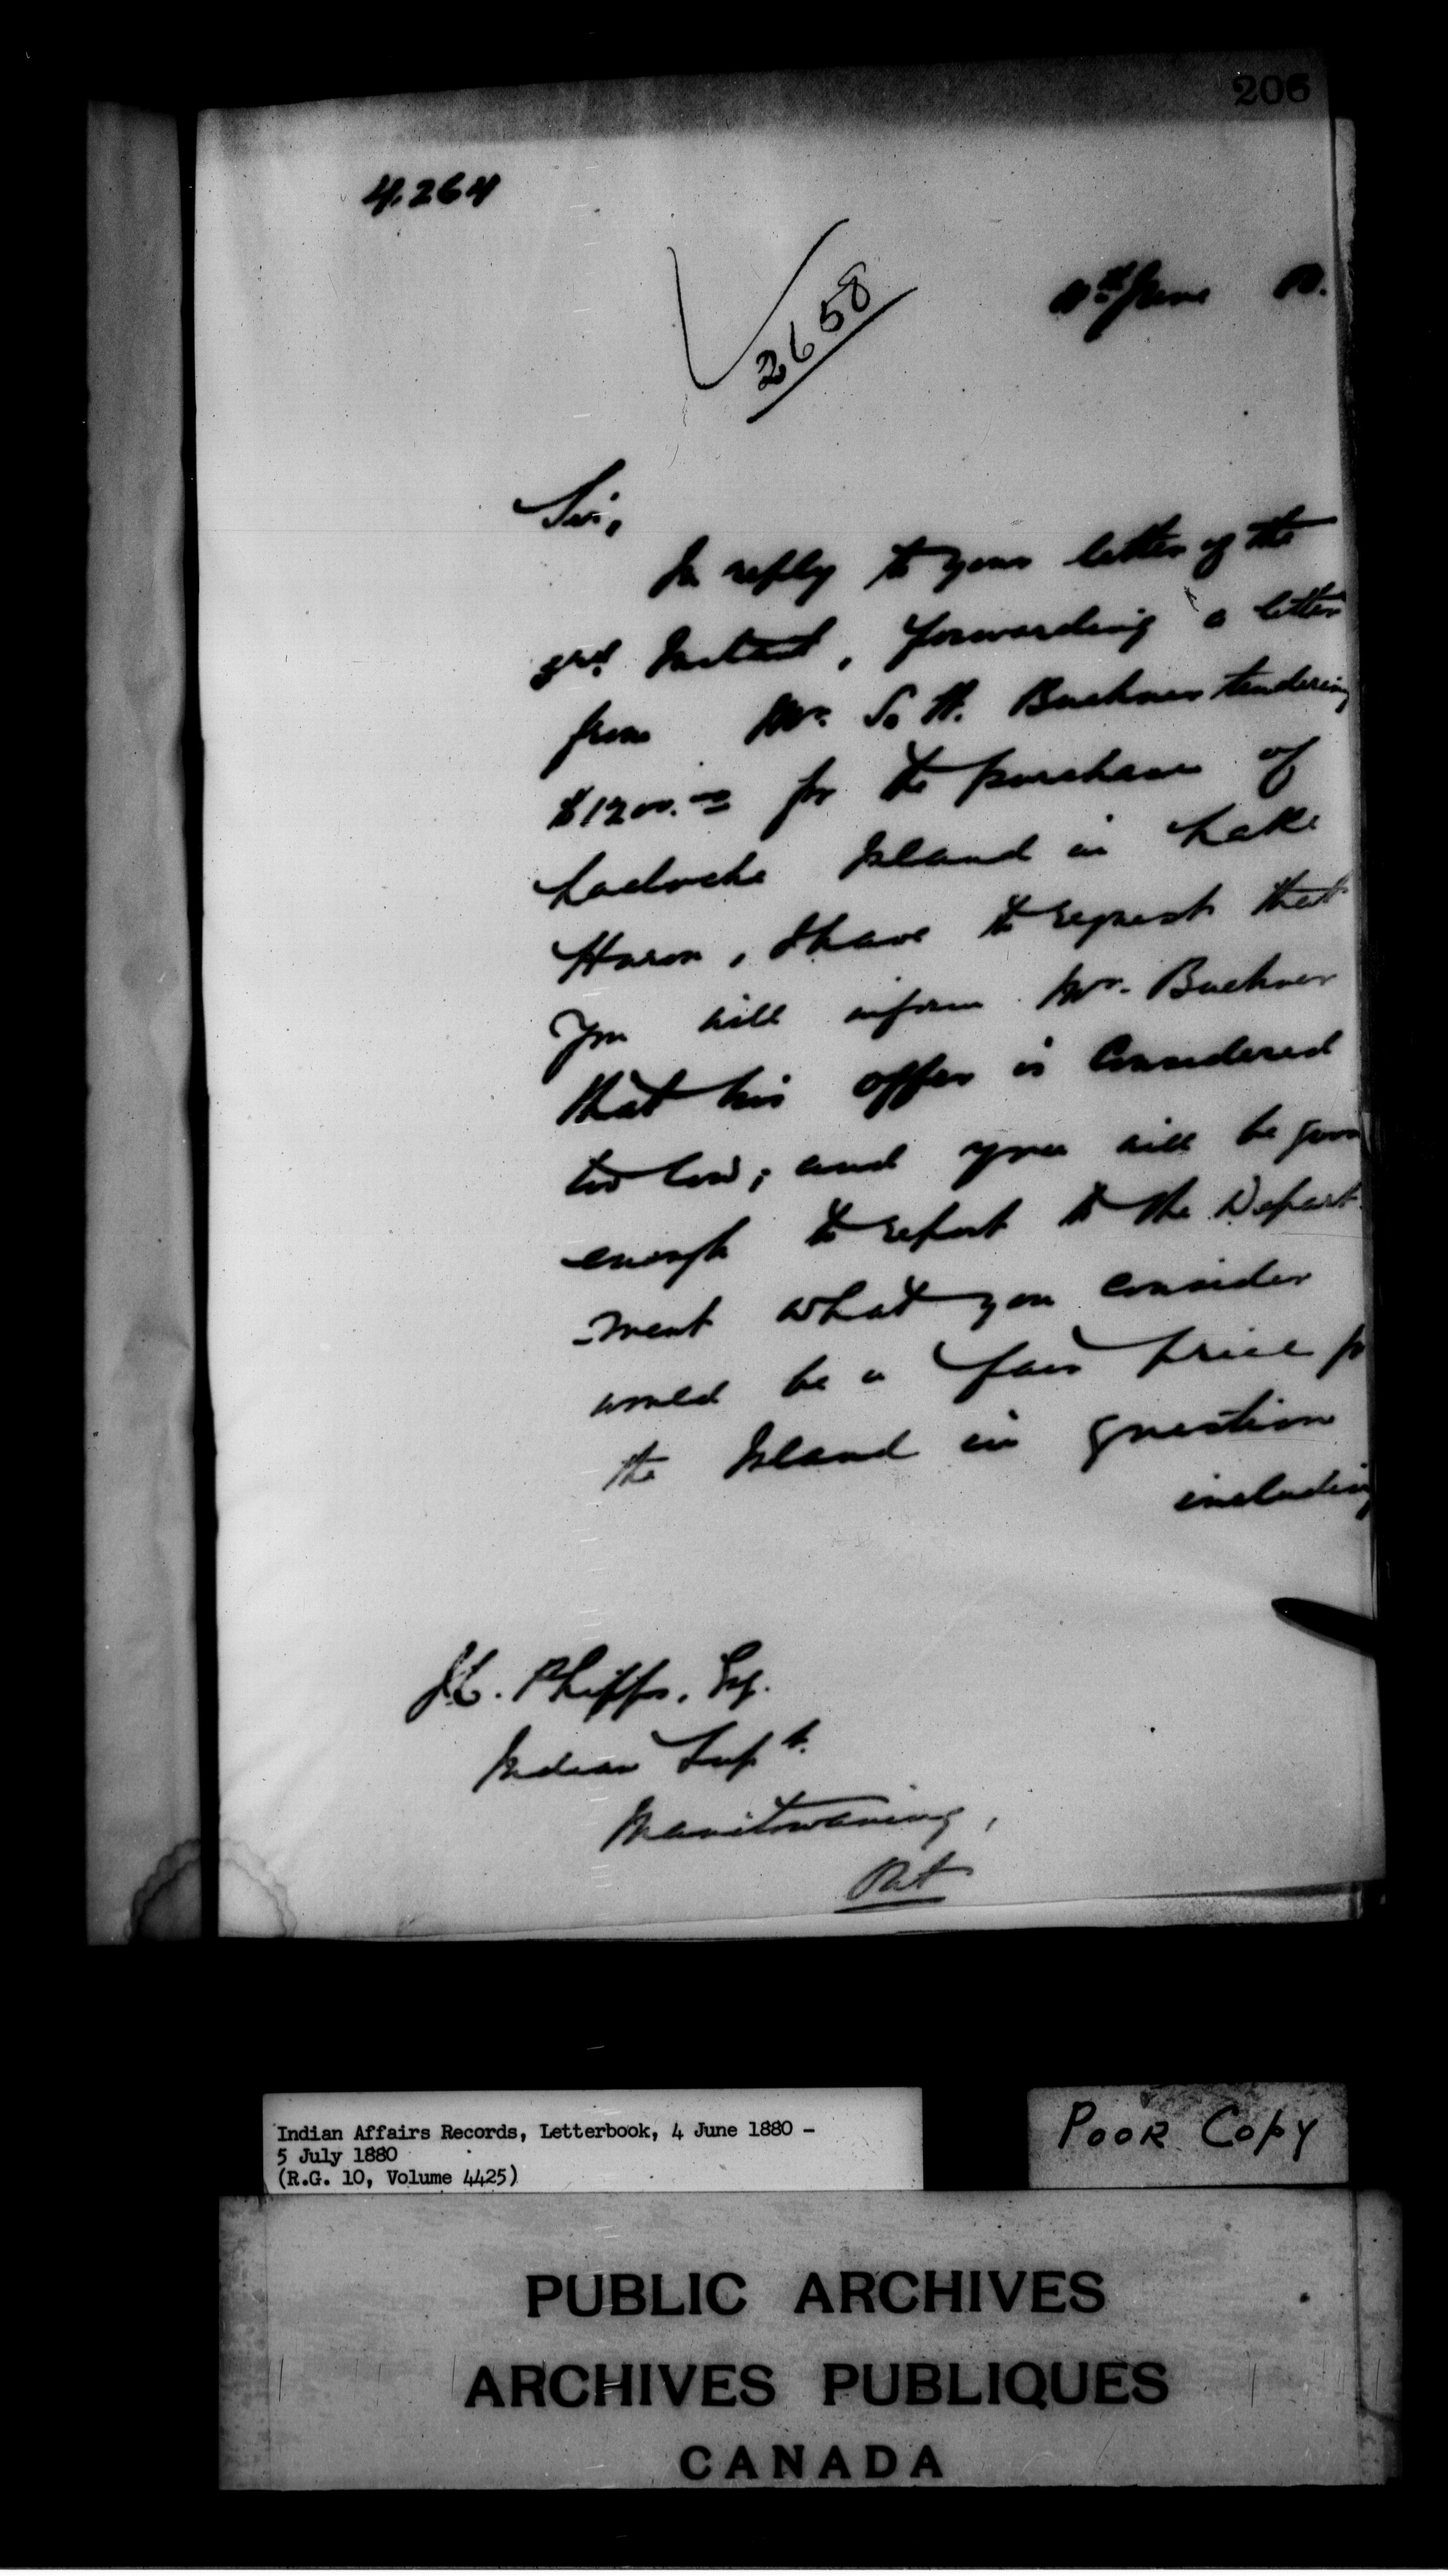 206
4.264
2658
11th June 80.
Sir,
In reply to your letter of the
3rd Instant, forwarding a letter
from Mr. S. H. Buckner tendering
$1200.00 for the purchase of
Island in Lake
Huron, I have to request that
you will inform Mr. Buckner
that his offer is considered
too low; and you will be good
enough to report to the Depart
-ment what you consider
would be a fair price for
the Island in question
including
J.C. Phipps, Esq.
Indian Supt.
Manitowaning,
Ont
Indian Affairs Records, Letterbook, 4 June 1880 -
5 July 1880
(R.G. 10, Volume 4425)
POOR Copy
PUBLIC ARCHIVES
ARCHIVES PUBLIQUES
CANADA